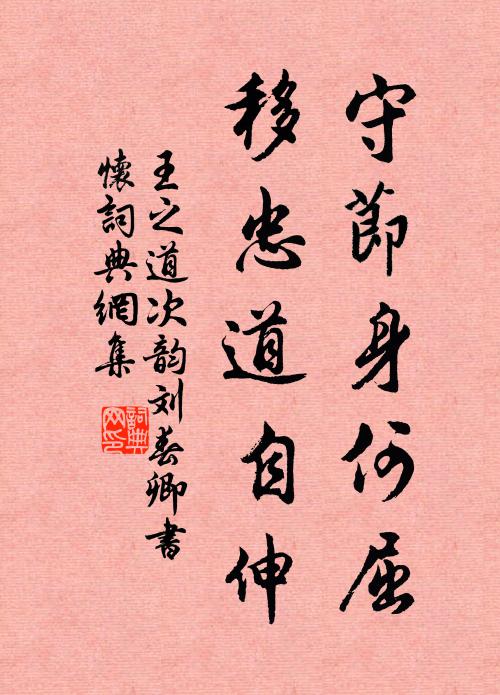 守節身何屈
移忠道自伸
王之道次韵刘春卿書
懷詞典網集
詞典
网印